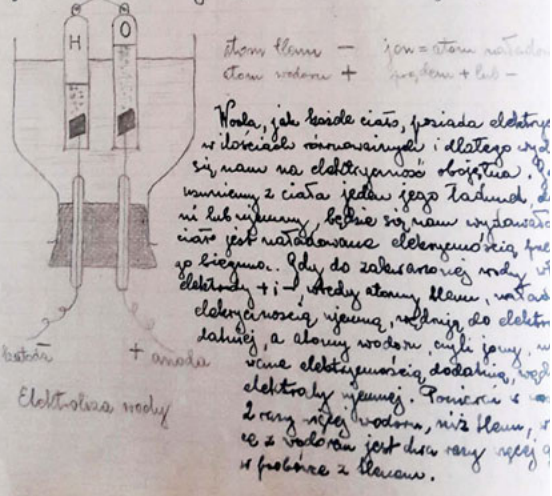 H O
atom tlenu − jon = atom naładow
atom wodoru + prądem + lub −
Woda, jak każde ciało, posiada elektryc
w ilościach równoważnych i dlatego wyd
się nam na elektryczność obojętna. G
usuniemy z ciała jeden jego ładunek, d
ni lub ujemny, będzie się nam wydawało
ciało jest naładowane elekrycznością
go bieguna. Gdy do zakwaszonej wody
elektrody + i − wtedy atomy tlenu, naład
elekrycznością ujemną, wędrują do elektro
datniej, a atomy wodoru, czyli jony, n
wane elektrycznością dodatnią, węd
elektrody ujemnej. Ponieważ w
2 razy więcej wodoru, niż tlenu, w
ce z wodorem jest dwa razy więcej g
w probówce z tlenem.
katoda + anoda
Elektroliza wody